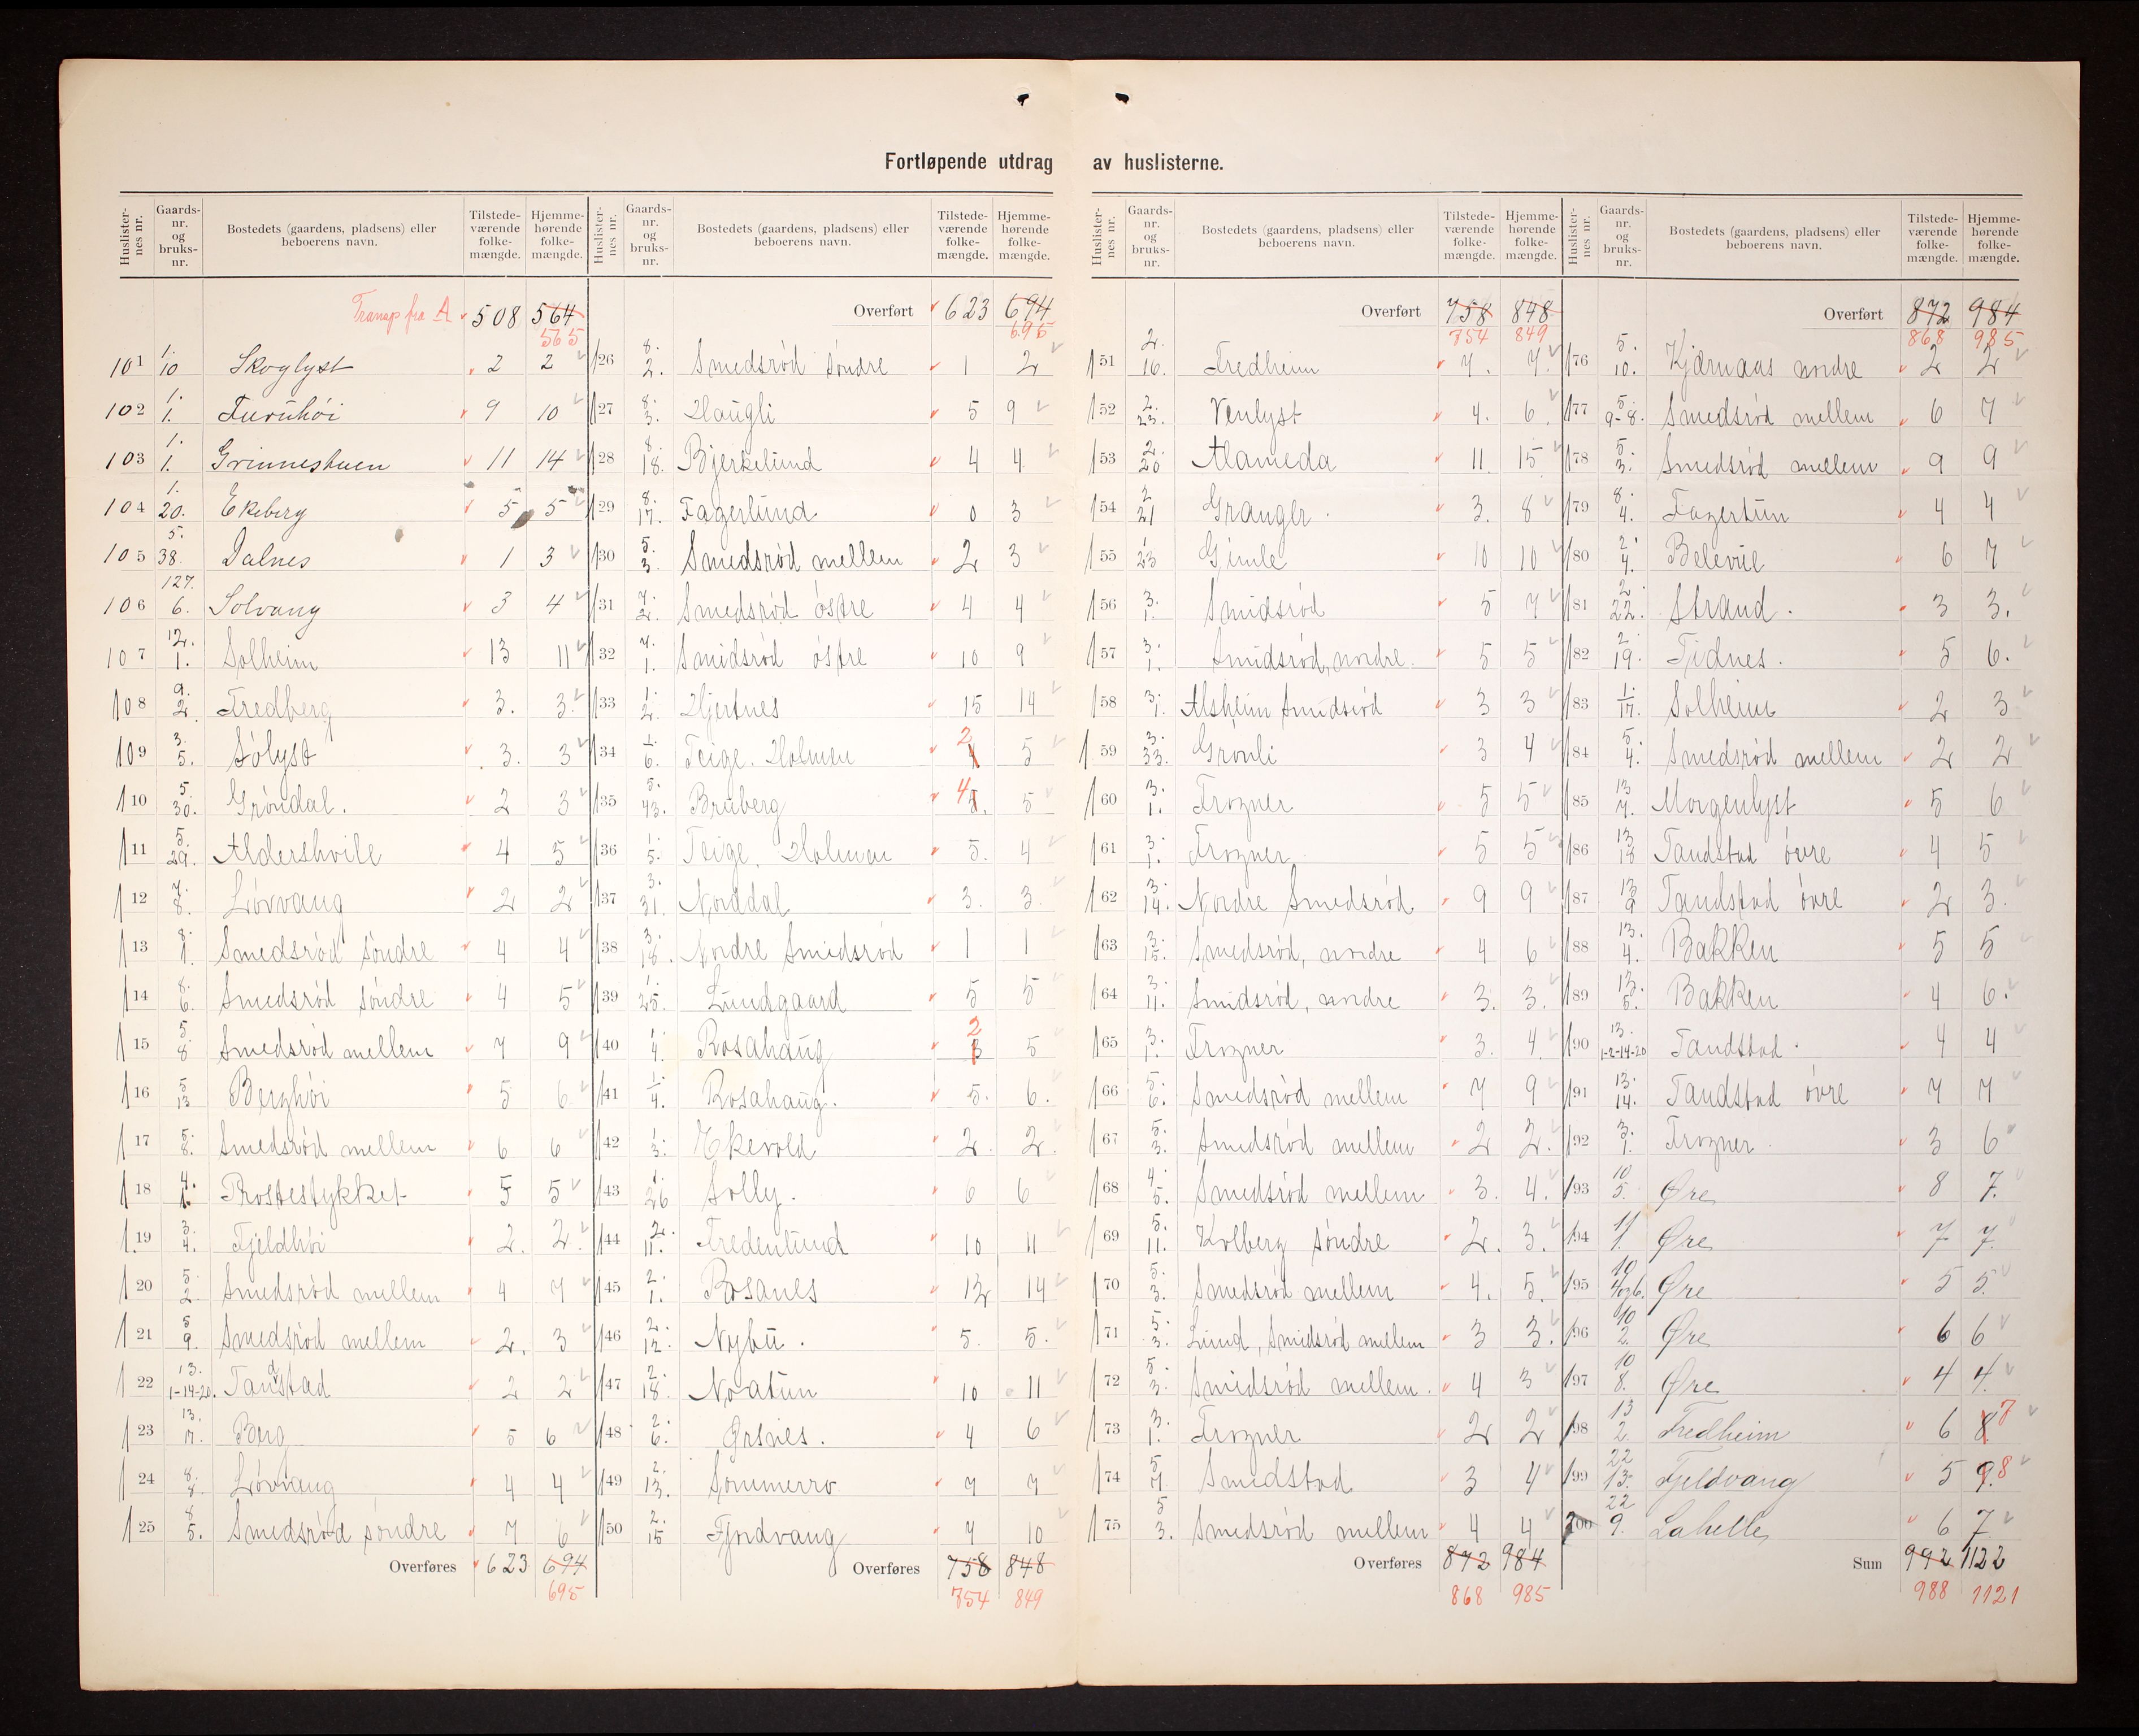 Fortløpende utdrag av huslisterne.
Huslisternes nr. Gaardsnr. og bruksnr. Bostedets (gaardens, pladsens) eller beboerens navn. Tilstedeværende folkemængde. Hjemmehørende folkemængde.
Transp fra A 508 564 565
101 1. 10 Skoglyst 2 2
102 1. 1. Furuhöi 9 10
103 1. 1. Grinnestuen 11 14
104 1. 20. Ekeberg 5 5
105 5. 38. Dalnes 1 3
106 127. 6. Solvang 3 4
107 12. 1. Solheim 13 11
108 9. 2. Fredberg 3. 3.
109 3. 5. Sölyst 3. 3
110 5. 30. Gröndal. 2 3
111 5. 29. Aldershvile 4 5
112 7. 8. Lövvang 2 2
113 8. 1. Smedsröd söndre 4 4
114 8. 6. Smedsröd söndre 4 5
115 5. 8 Smedsröd mellem 7 9
116 5 13 Berghöi 5 6
117 5. 8. Smedsröd mellem 6 6
118 4. 1. Prostestykket 5 5
119 3. 4. Fjeldhöi 2. 2.
120 5. 2. Smedsröd mellem 4 7
121 5 9. Smedsröd mellem 2. 3
122 13. 1-14-20. Tandstad 2 2
123 13. 17. Berg 5 6
124 8. 7. Lövvang 4 4
125 8 5. Smedsröd söndre 7 6
Overføres 623 694 695
Huslisternes nr. Gaardsnr. og bruksnr. Bostedets (gaardens, pladsens) eller beboerens navn. Tilstedeværende folkemængde. Hjemmehørende folkemængde.
Overført 623 694 695
126 8. 2. Smedsröd Söndre 1 2
127 8. 3. Haugli 5 9
128 8. 18. Bjerkelund 4 4
129 8. 17. Fagerlund 0 3
130 5. 3. Smedsröd mellem 2 3
131 7. 2. Smedsröd östre 4 4
132 7. 1. Smidsröd östre 10 9
133 1. 2. Hjertnes 15 14
134 1. 6. Teige. Holmen 2 5
135 5. 43. Bruberg 4 5
136 1. 5. Teige, Holmen 5. 4
137 3. 31. Norddal 3. 3.
138 3. 18. Nordre Smidsröd 1 1
139 1. 25. Lundgaard 5 5
140 1 4. Rosahaug 2 5
141 1. 4. Rosahaug. 5. 6.
142 1 3. Ekevold 2. 2.
143 1. 26 Solly. 6 6
144 2. 11. Fredenlund 10 11
145 2. 1. Rosanes 12 14
146 2. 12. Nybu. 5. 5.
147 2. 18. Noatun 10 11
148 2. 6. Örsnes. 4 6
149 2. 13. Sommerro 7 7
150 2. 15 Fjordvang 7 10
Overføres 758 848 754 849
Huslisternes nr. Gaardsnr. og bruksnr. Bostedets (gaardens, pladsens) eller beboerens navn. Tilstedeværende folkemængde. Hjemmehørende folkemængde.
Overført 758 848 754 849
151 2. 16. Fredheim 7. 7.
152 2. 23. Venlyst 4. 6
153 2. 20 Alameda 11. 15
154 2 21 Granger. 3. 8
155 1 23 Gimle 10 10
156 3. 1. Smidsröd 5 7
157 3. 1. Smidsröd, nordre. 5 5
158 3. 1. Alsheim Smidsröd 3 3
159 3. 33. Grönli 3 4
160 3. 1. Frogner 5 5
161 3. 1. Frogner 5 5
162 3. 14. Nordre Smedsröd 9 9
163 3. 15. Smedsröd, nordre 4 6
164 3. 11. Smidsröd, nordre 3. 3.
165 3. 1. Frogner 3. 4.
166 5. 6. Smedsröd mellem 7 9
167 5. 3. Smedsröd mellem 2 2.
168 4. 5. Smedsröd mellem 3. 4.
169 5. 11. Kolberg söndre 2. 3.
170 5. 3. Smedsröd mellem 4. 5.
171 5. 3. Lund, Smidsröd mellem 3 3.
172 5. 3. Smidsröd mellem. 4 3
173 3. 1. Frogner 2 2
174 5 7 Smidstad 3 4
175 5 3. Smedsröd mellem 4 4
Overføres 872 984 868 985
Huslisternes nr. Gaardsnr. og bruksnr. Bostedets (gaardens, pladsens) eller beboerens navn. Tilstedeværende folkemængde. Hjemmehørende folkemængde.
Overført 872 984 868 985
176 5. 10. Kjærnaas nordre 2 2
177 5 9-8. Smedsröd mellem 6 7
178 5 3. Smedsröd mellem 9 9
179 8. 4. Fagertun 4 4
180 2. 4. Belevue 6 7
181 2. 22. Strand. 3 3.
182 2. 19. Tidnes. 5 6.
183 1. 17. Solheim 2 3
184 5 4. Smedsröd mellem 2 2
185 13 7. Morgenlyst 5 6
186 13 18 Tandstad övre 4 5
187 13 9 Tandstad övre 2 3.
188 13. 4. Bakken 5 5
189 13. 5. Bakken 4 6.
190 13. 1-2-14-20 Tandstad. 4 4
191 13. 14. Tandstad övre 7 7
192 3. 1. Frogner. 3 6
193 10 5. Øre 8 7.
194 11 1. Øre 7 7.
195 10 4og6. Øre 5 5.
196 10 2. Øre 6 6
197 10 8. Øre 4 4.
198 13 2. Fredheim 6 8 7
199 22 13. Fjeldvang 5 9. 8
200 22 9. Lahelle 6 7
Sum 992 1122 988 1121